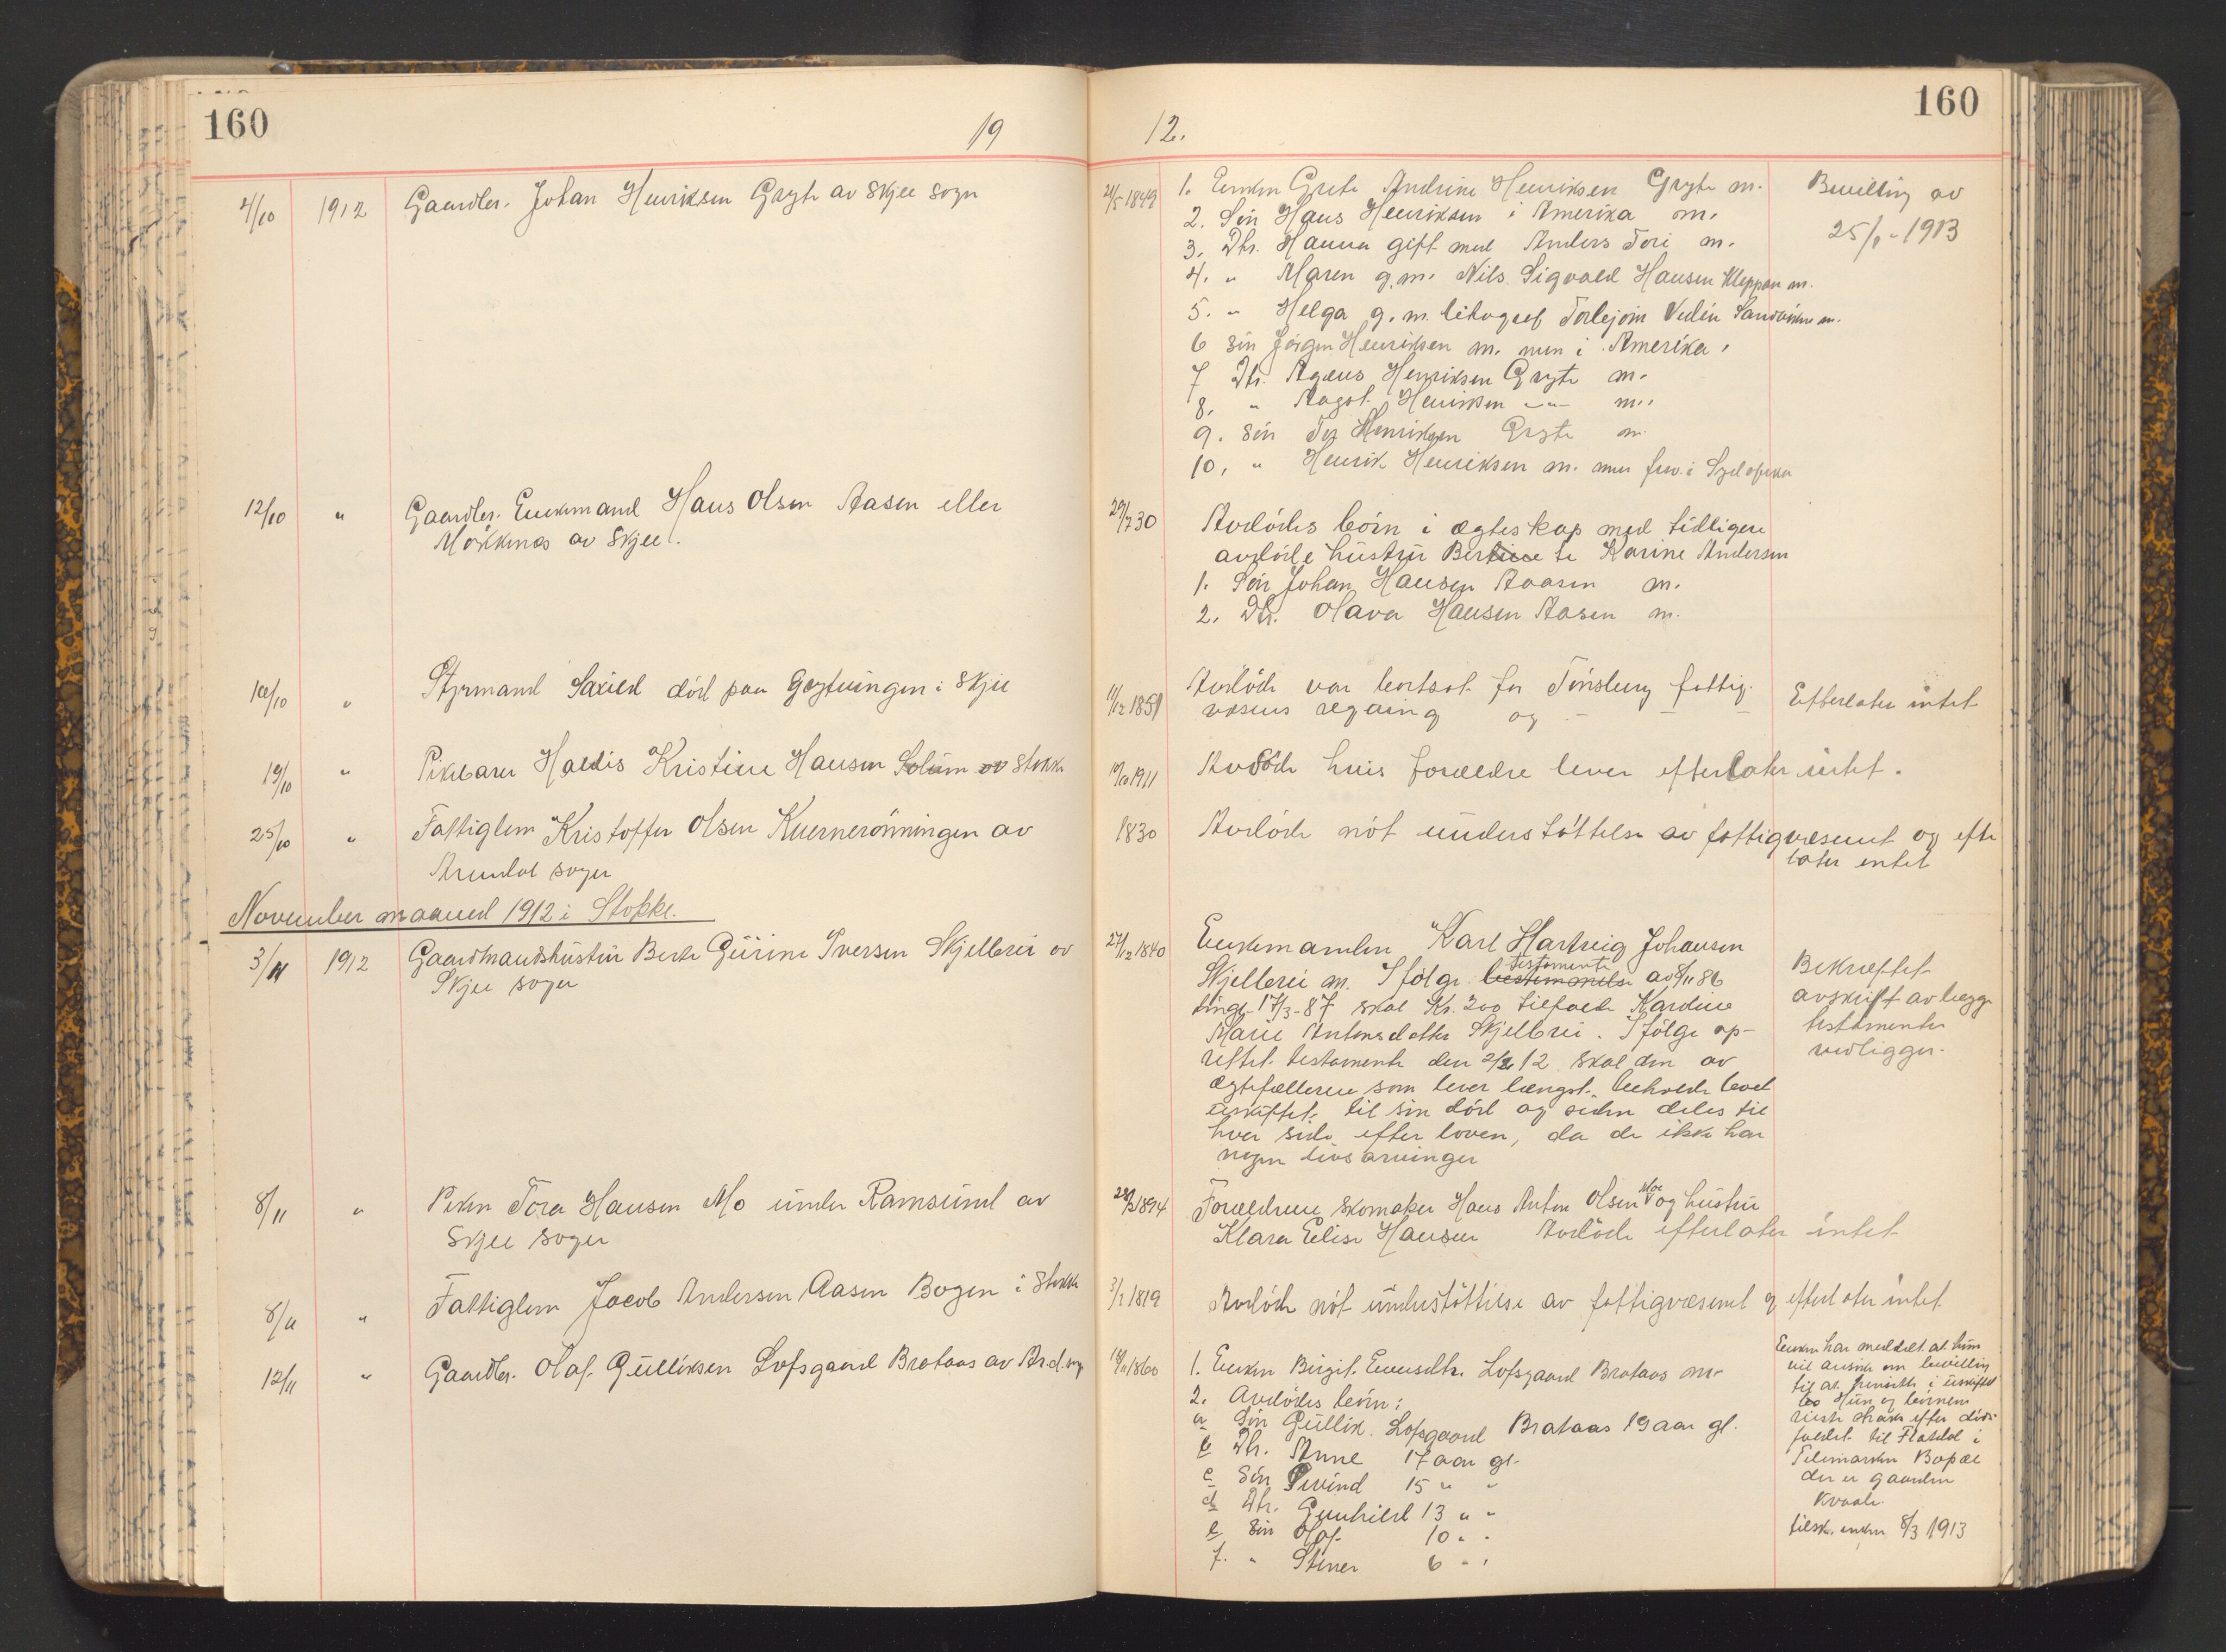 160
19
12.
160
4/10 1912 Gaardbr. Johan Henriksen Gryte av Skjee sogn
21/5 1849 1. Enken Grete Andrine Henriksen Gryte m.
Bevilling av
25/1-1913
2. Sön Hans Henriksen i Amerika m.
3. Dtr. Hanna gift med Anders Tori m.
4. " Maren g.m. Nils Sigvald Hansen Kleppan m.
5. " Helga g.m. litograf Torbjörn Vedin Sandviken m.
6 Sön Jörgen Henriksen m. nun i Amerika.
7 Dtr. Agnes Henriksen Gryte m.
8. " Aagot Henriksen -"- m.
9. Sön Tor Henriksen Gryte m
10. " Henrik Henriksen m. nun frav. i Sydafrika
12/10 " Gaardbr. Enkemand Hans Olsen Aasen eller
Mökkenes av Skjee.
29/7 30 Avdödes börn i ægteskap med tidligere
avdöde hustru Berte Karine Andersen
1. Sön Johan Hansen Aasen m.
2. Dtr. Olava Hansen Aasen m.
14/10 " Styrmand Saxild död paa Grytingen i Skjee
11/12 1851 Avdöde var bortsat for Tönsberg fattig-
væsens regning og
Efterlater intet
19/10 " Pikebarn Haldis Kristine Hansen Solum av Stokke
10/10 1911 Avdöde hvis forældre lever efterlater intet.
25/10 " Fattiglem Kristoffer Olsen Kvernerönningen av
Arendal sogn
1830 Avdöde nöt understöttelse av fattigvæsenet og efter
later intet
November maaned 1912 i Stokke.
3/11 1912 Gaardmandshustru Berte Gurine Iversen Skjelbrei av
Skjee sogn
27/12 1840 Enkemanden Karl Hartvig Johansen
Skjelbrei m. Ifölge bestemmelse testamente av 8/11 86
tingl. 17/3-87 skal Kr. 200 tilfalde Kardine
Marie Antonsdatter Skjelbrei. Ifölge op-
rettet testamente den 2/2 12 skal den av
ægtefællerne som lever længst, beholde boet
uskiftet til sin död og siden deles til
hver side efter loven, da de ikke har
nogen livsarvinger
Bekræftet
avskrift av begge
testamenter
vedligger.
8/11 " Piken Tora Hansen Mo under Ramsum av
Skjee sogn
28/3 1894 Forældrene skomaker Hans Anton Olsen Mo og hustru
Klara Elise Hansen Avdöde efterlater intet
8/11 " Fattiglem Jacob Andersen Aasen Bogen i Stokke
3/1 1819 Avdöde nöt understöttelse av fattigvæsenet og efterlater intet
12/11 " Gaardbr. Olaf Gulliksen Lofsgaard Brataas av Ar.d. sogn
18/11 1860 1. Enken Birgit Evensdtr. Lofsgaard Brataas m.
2. Avdödes börn:
a Sön Gullik Lofsgaard Brataas 19 aar gl.
b Dtr. Anne 17 aar gl.
c Sön Eivind 15 " "
d Dtr. Gunhild 13 " "
e Sön Olaf 10 " "
f. " Stener 6 " "
Enken har meddelt at hun
vil ansöke om bevilling
til at hensitte i uskiftet
bo Hun og börnene
reiste straks efter döds-
faldet til Flatdal i
Telemarken Bopæl
der er gaarden
Kvaale.
tilsk. enken 8/3 1913